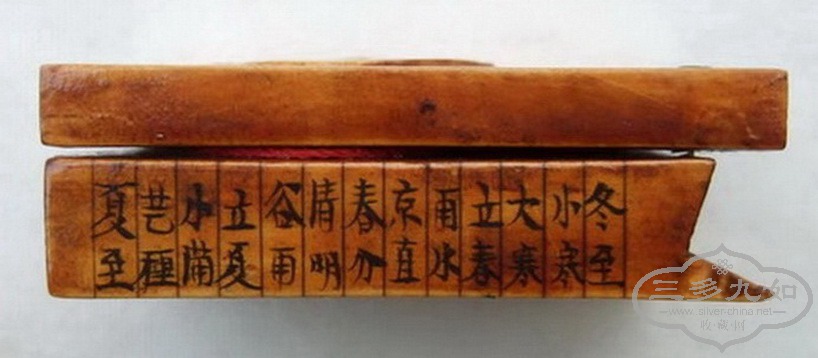 冬至
小寒
大寒
立春
雨水
京直
春分
清明
谷雨
立夏
小滿
芒種
夏至
三多九如
www.silver-china.net
收·藏·网